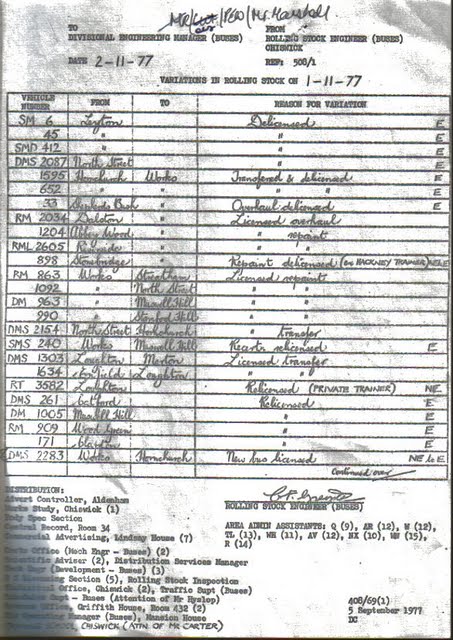 TO
FROM
DIVISIONAL ENGINEERING MANAGER (BUSES) ROLLING STOCK ENGINEER (BUSES)
CHISWICK
DATE 2-11-77 REF: 508/1
VARIATIONS IN ROLLING STOCK ON 1-11-77
VEHICLE NUMBER FROM TO REASON FOR VARIATION
SM 6 Leyton Delicensed E
45 " " E
SMD 412 " " E
DMS 2087 North Street " E
1595 Hornchurch Works Transferred & delicensed E
652 " " " " E
33 Shepherds Bush Overhaul delicensed E
RM 2034 Dalston Licensed overhaul
1204 Abbey Wood " repaint
RML 2605 Riverside " "
898 Stonebridge Repaint delicensed (ex HACKNEY TRAINER) NE/NE
RM 863 Works Streatham Licensed repaint
1092 " North Street " "
DM 963 " Muswell Hill " "
990 " Stamford Hill " "
DMS 2154 North Street Hornchurch " transfer
SMS 240 Works Muswell Hill relicensed E
DMS 1303 Loughton Merton Licensed transfer
1634 Enfield Loughton " "
RT 3582 Loughton Relicensed (PRIVATE TRAINER) NE
DMS 261 Catford Relicensed E
DM 1005 Muswell Hill " E
RM 909 Wood Green " E
171 Clapton " E
DMS 2283 Works Hornchurch New bus licensed NE to E
Continued over
DISTRIBUTION:
Advert Controller, Aldenham ROLLING STOCK ENGINEER (BUSES)
Works Study, Chiswick (1)
Body Spec Section
Central Record, Room 34 AREA ADMIN ASSISTANTS: Q (9), AR (12), W (12),
Commercial Advertising, Lindsay House (7) TL (13), WH (11), AV (12), HX (10), MH (15),
R (14)
Office (Mech Engr - Buses) (2)
Scientific Adviser (2), Distribution Services Manager
(Development - Buses) (3)
Section (5), Rolling Stock Inspection
Office, Chiswick (2), Traffic Supt (Buses)
Supt - Buses (Attention of Mr Hyslop) 408/69(1)
Office, Griffith House, Room 432 (2) 5 September 1977
Manager (Buses), Mansion House DC
CHISWICK (ATTN OF MR CARTER)